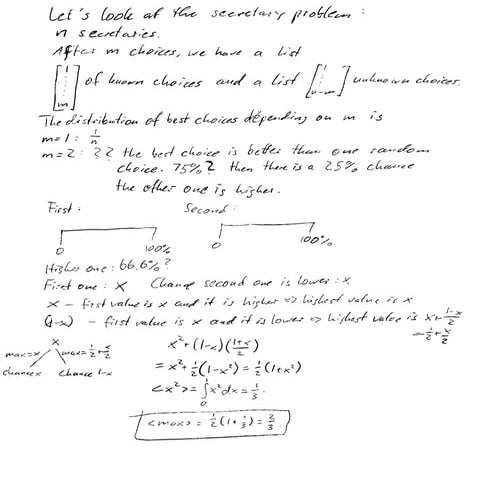 Let's look at the secretary problem:
n secretaries.
After m choices, we have a list
[1 ⋮ m] of known choices and a list [1 ⋮ n-m] unknown choices.
The distribution of best choices depending on m is
m=1: 1/n
m=2: ?? the best choice is better than one random
choice. 75%? then there is a 25% chance
the other one is higher.
First: Second:
0 100% 0 100%
Higher one: 66.6%?
First one: x Change second one is lower: x
x - first value is x and it is higher => highest value is x
(1-x) - first value is x and it is lower => highest value is x+(1-x)/2
= 1/2+x/2
x
max=x max=1/2+x/2
chance x chance 1-x
x²+(1-x)((1+x)/2)
= x²+1/2(1-x²) = 1/2(1+x²)
<x²> = ∫₀¹x²dx = 1/3.
<max> = 1/2(1+1/3) = 2/3.